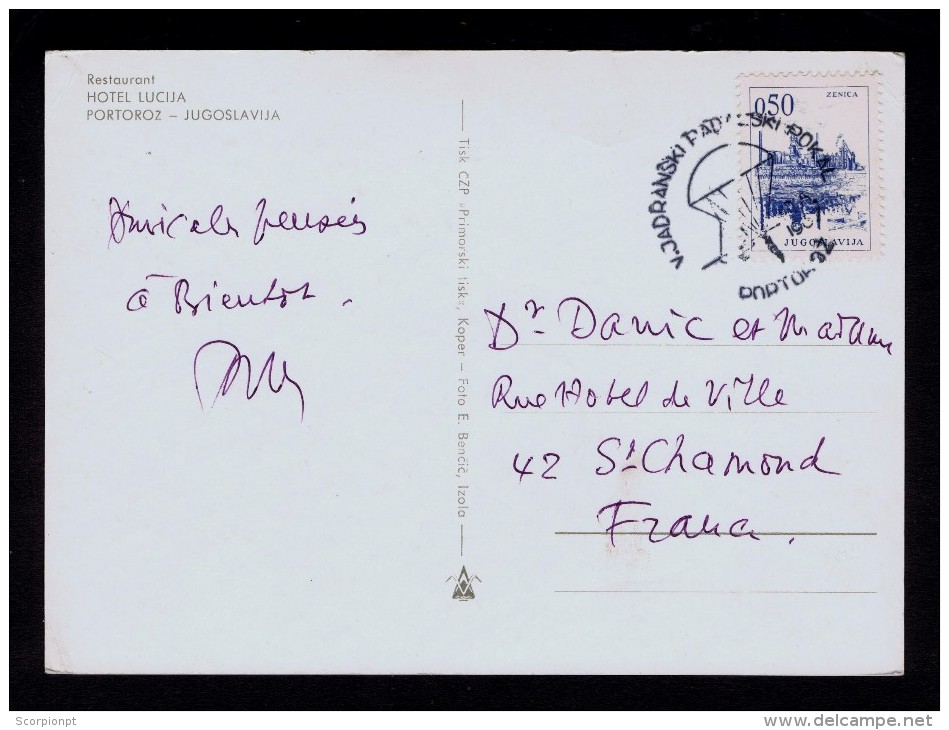 Restaurant
HOTEL LUCIJA
PORTOROZ – JUGOSLAVIJA
à Bientôt.
Tisk CZP »Primorski tisk«, Koper – Foto E. Benčič, Izola
0,50
ZENICA
JUGOSLAVIJA
V. JADRANSKI POKAL
PORTOROŽ
Dr Danic et Madam
Rue Hotel de Ville
42 St Chamond
France.
Scorpionpt
www.delcampe.net